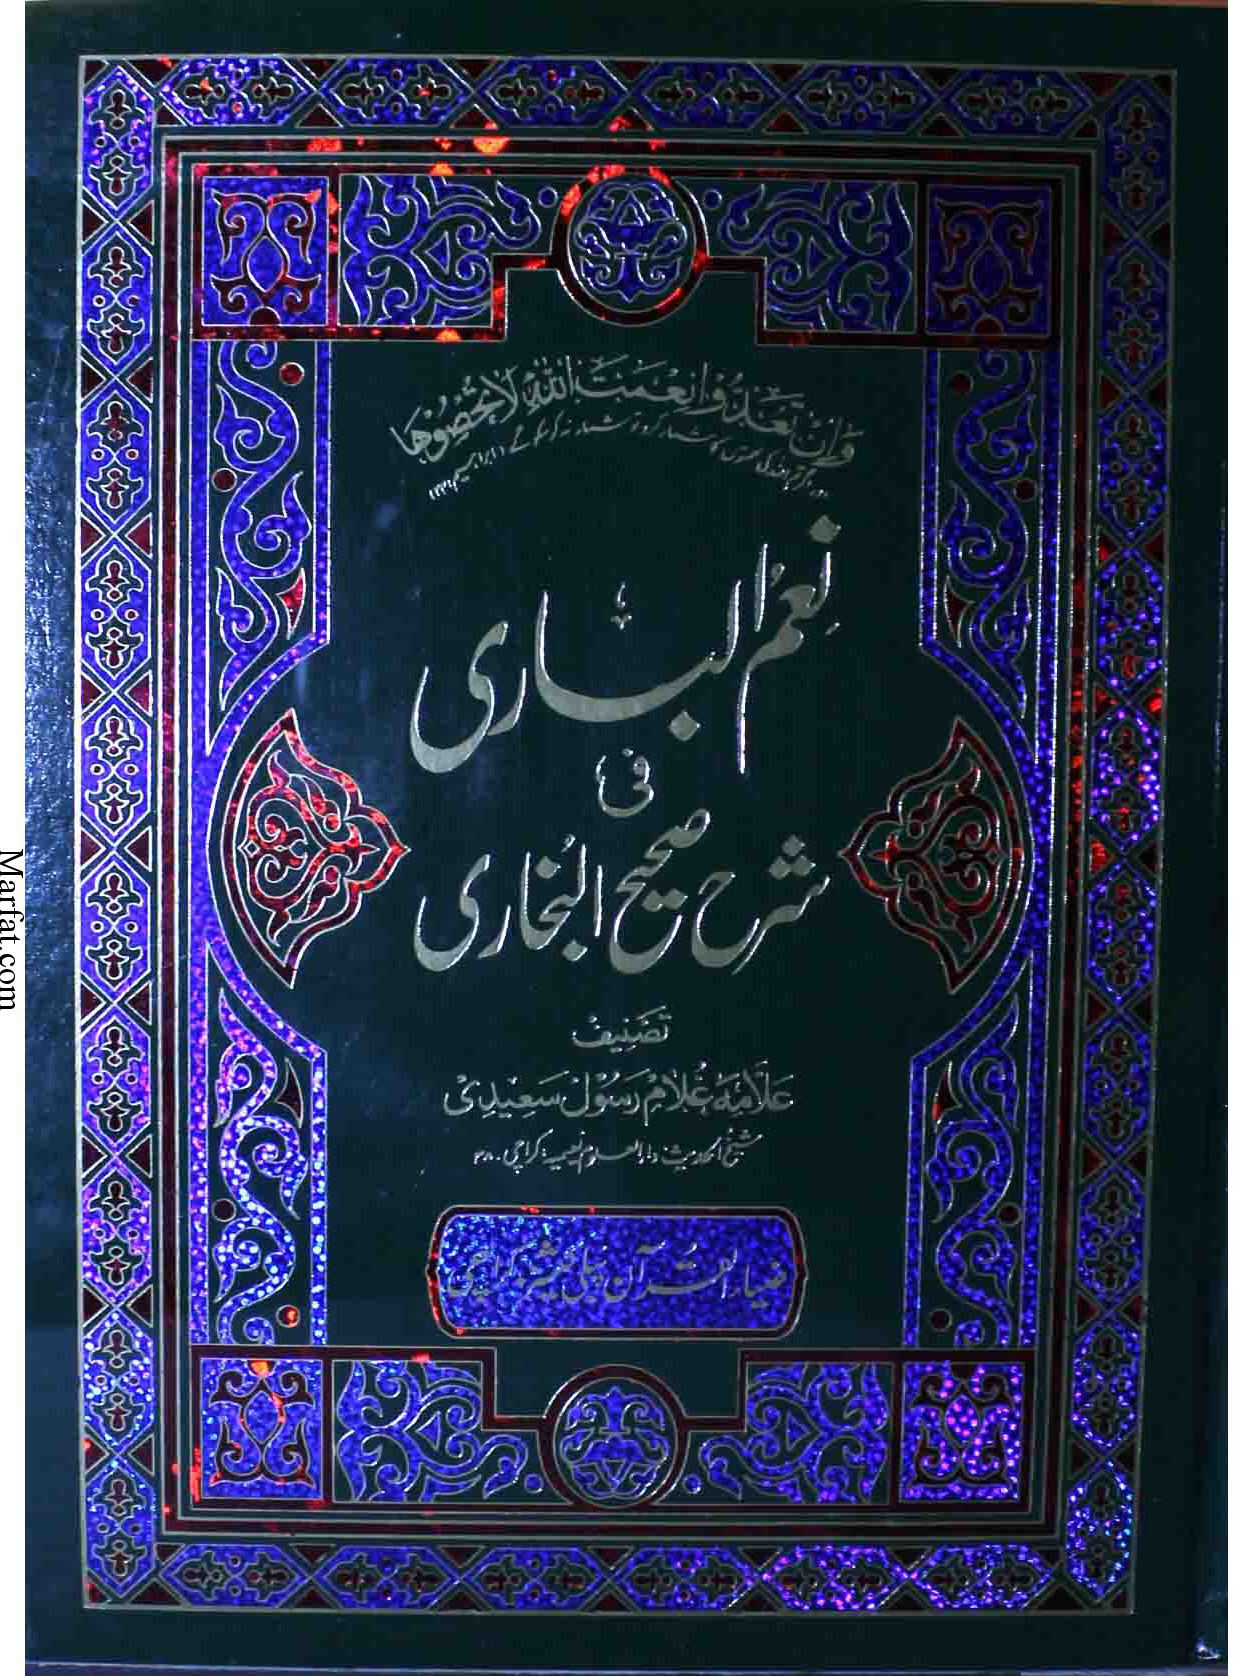 وَاِنْ تَعُدُّوْا نِعْمَتَ اللّٰهِ لَا تُحْصُوْهَا
اور اگر تم اللہ کی نعمتوں کا شمار کرو تو شمار نہ کر سکو گے (ابراہیم:
نِعَمُ الباری
فی
شرح صحیح البُخاری
تصنیف
علّامہ غُلام رسول سعیدی
شیخ الحدیث دارالعلوم نعیمیہ کراچی۔۳۸
ضیاءُ القرآن پبلی کیشنز کراچی
Marfat.com